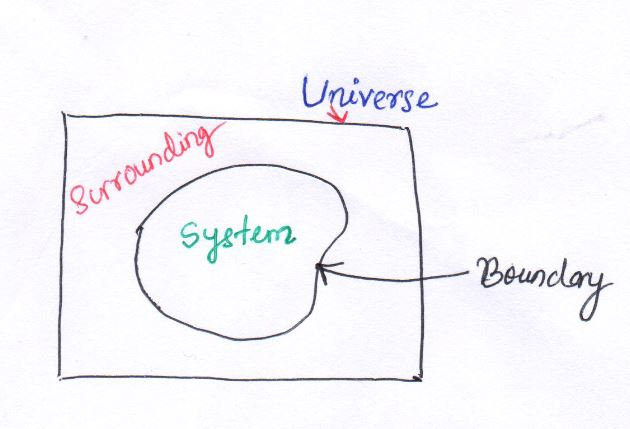 Universe
Surrounding
System
Boundary